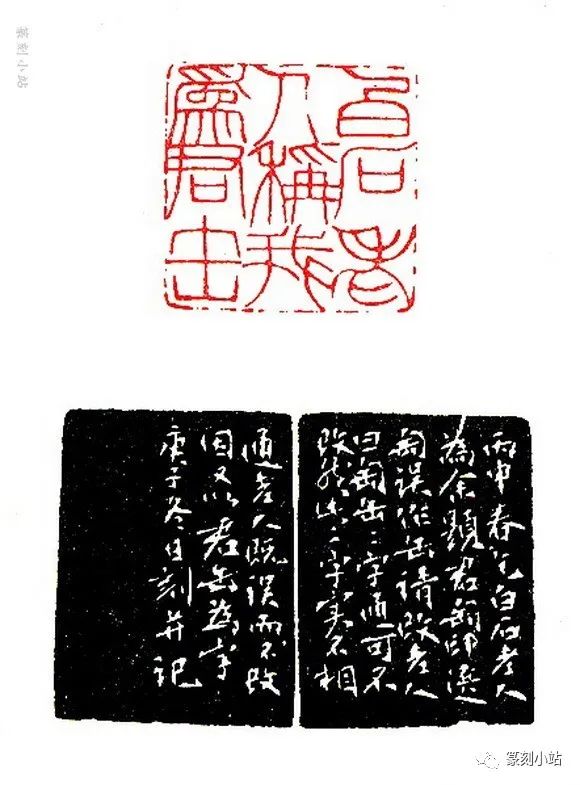 篆刻小站
白石老
人稱我
爲君缶
丙申春乞白石老人
為余題君匋印選
匋誤作缶請改老人
曰匋缶二字通可不
改然此二字實不相
通老人既誤而不改
因又以君缶為字
庚子冬日刻并記
篆刻小站